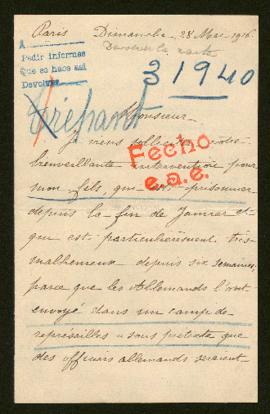 Paris Dimanche, 28 Mai 1916
Devolver la carta
A
Pedir informes
Que se haos asi
Devolver
31940
Trépant
Monsieur
Je viens solliciter votre
bienveillante intervention pour
Fecho
e.a.e.
mon fils, qui est prisonnier
depuis la fin de Janvier et
qui est particulièrement très
malheureux depuis six semaines,
parce que les Allemands l'ont
envoyé dans un camp de
représailles "sous prétexte que
des officiers allemands seraient